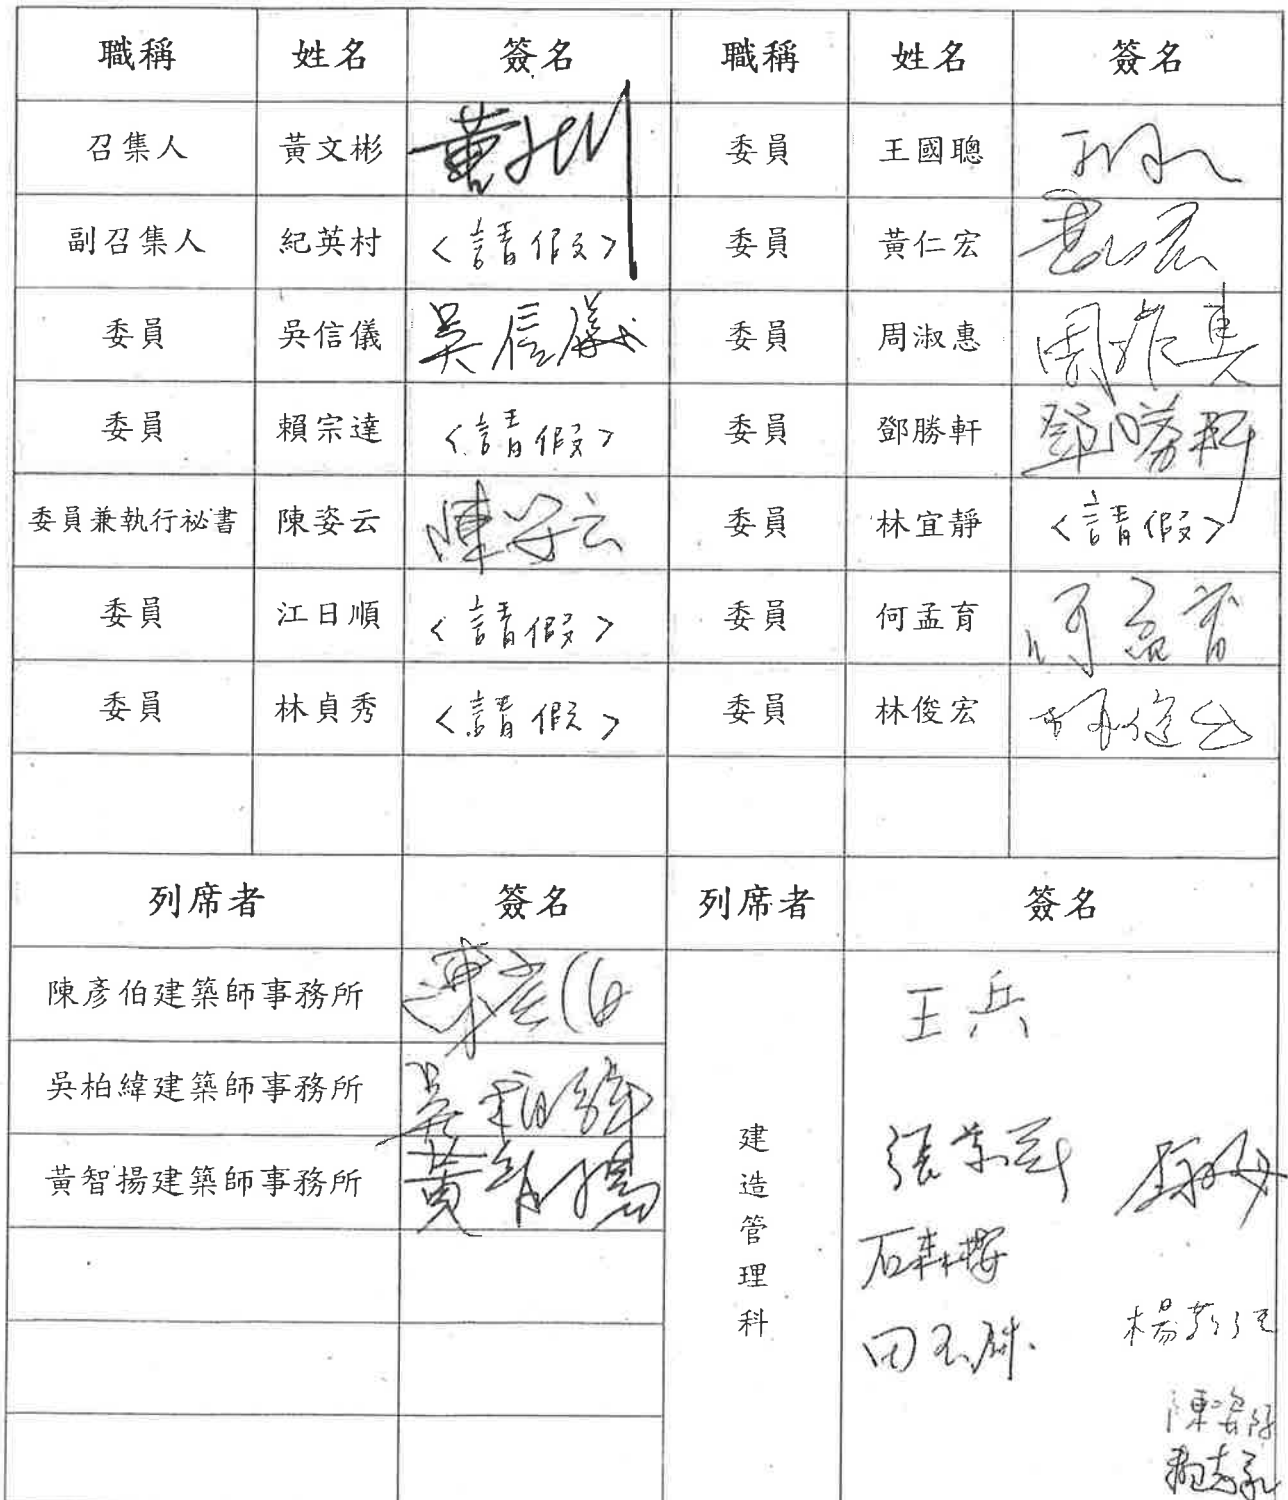 職稱 姓名 簽名 職稱 姓名 簽名
召集人 黃文彬 委員 王國聰
副召集人 紀英村 <請假> 委員 黃仁宏
委員 吳信儀 吳信儀 委員 周淑惠 周淑惠
委員 賴宗達 <請假> 委員 鄧勝軒 鄧勝軒
委員兼執行祕書 陳姿云 陳姿云 委員 林宜靜 <請假>
委員 江日順 <請假> 委員 何孟育 何孟育
委員 林貞秀 <請假> 委員 林俊宏 林俊宏
列席者 簽名 列席者 簽名
陳彥伯建築師事務所 陳彥伯 建造管理科 王兵
吳柏緯建築師事務所 吳柏緯
黃智揚建築師事務所 黃智揚